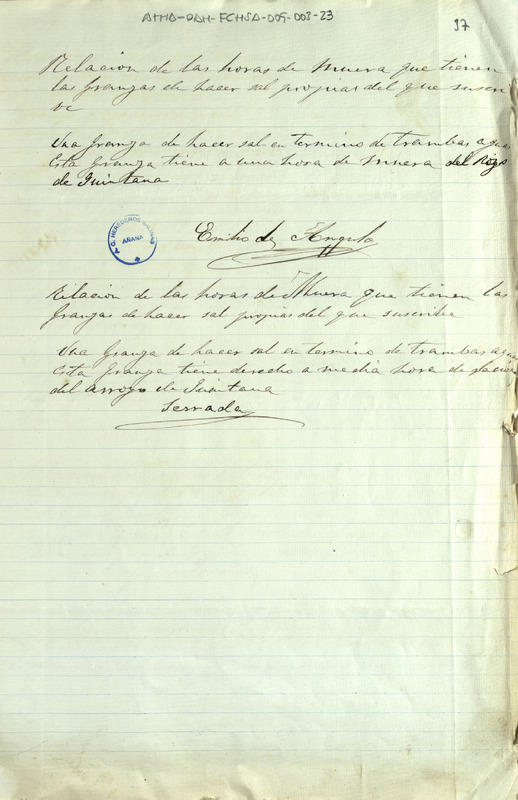 ATHA-DAH-FCHSA-009-003-23
37
Relacion de las horas de Muera que tienen
las granzas de hacer sal propias del que suscri
be
Una granza de hacer sal en termino de trambas aguas
Esta granza tiene a una hora de muera del Rojo
de Quintana
Emilio de Angulo
AÑANA
Relacion de las horas de Muera que tienen las
granzas de hacer sal propias del que suscribe
Una granza de hacer sal en termino de trambas aguas
Esta granza tiene derecho a media hora de
del arroyo de Quintana
Terrada